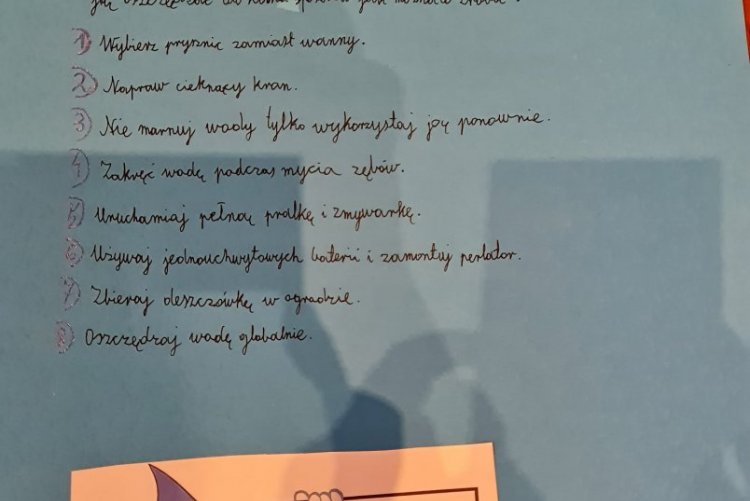 ją oszczędzać
1 Wybierz prysznic zamiast wanny.
2 Napraw cieknący kran.
3 Nie marnuj wody tylko wykorzystaj ją ponownie.
4 Zakręć wodę podczas mycia zębów.
5 Uruchamiaj pełną pralkę i zmywarkę.
6 Używaj jednouchwytowych baterii i zamontuj perlator.
7 Zbieraj deszczówkę w ogrodzie.
8 Oszczędzaj wodę globalnie.